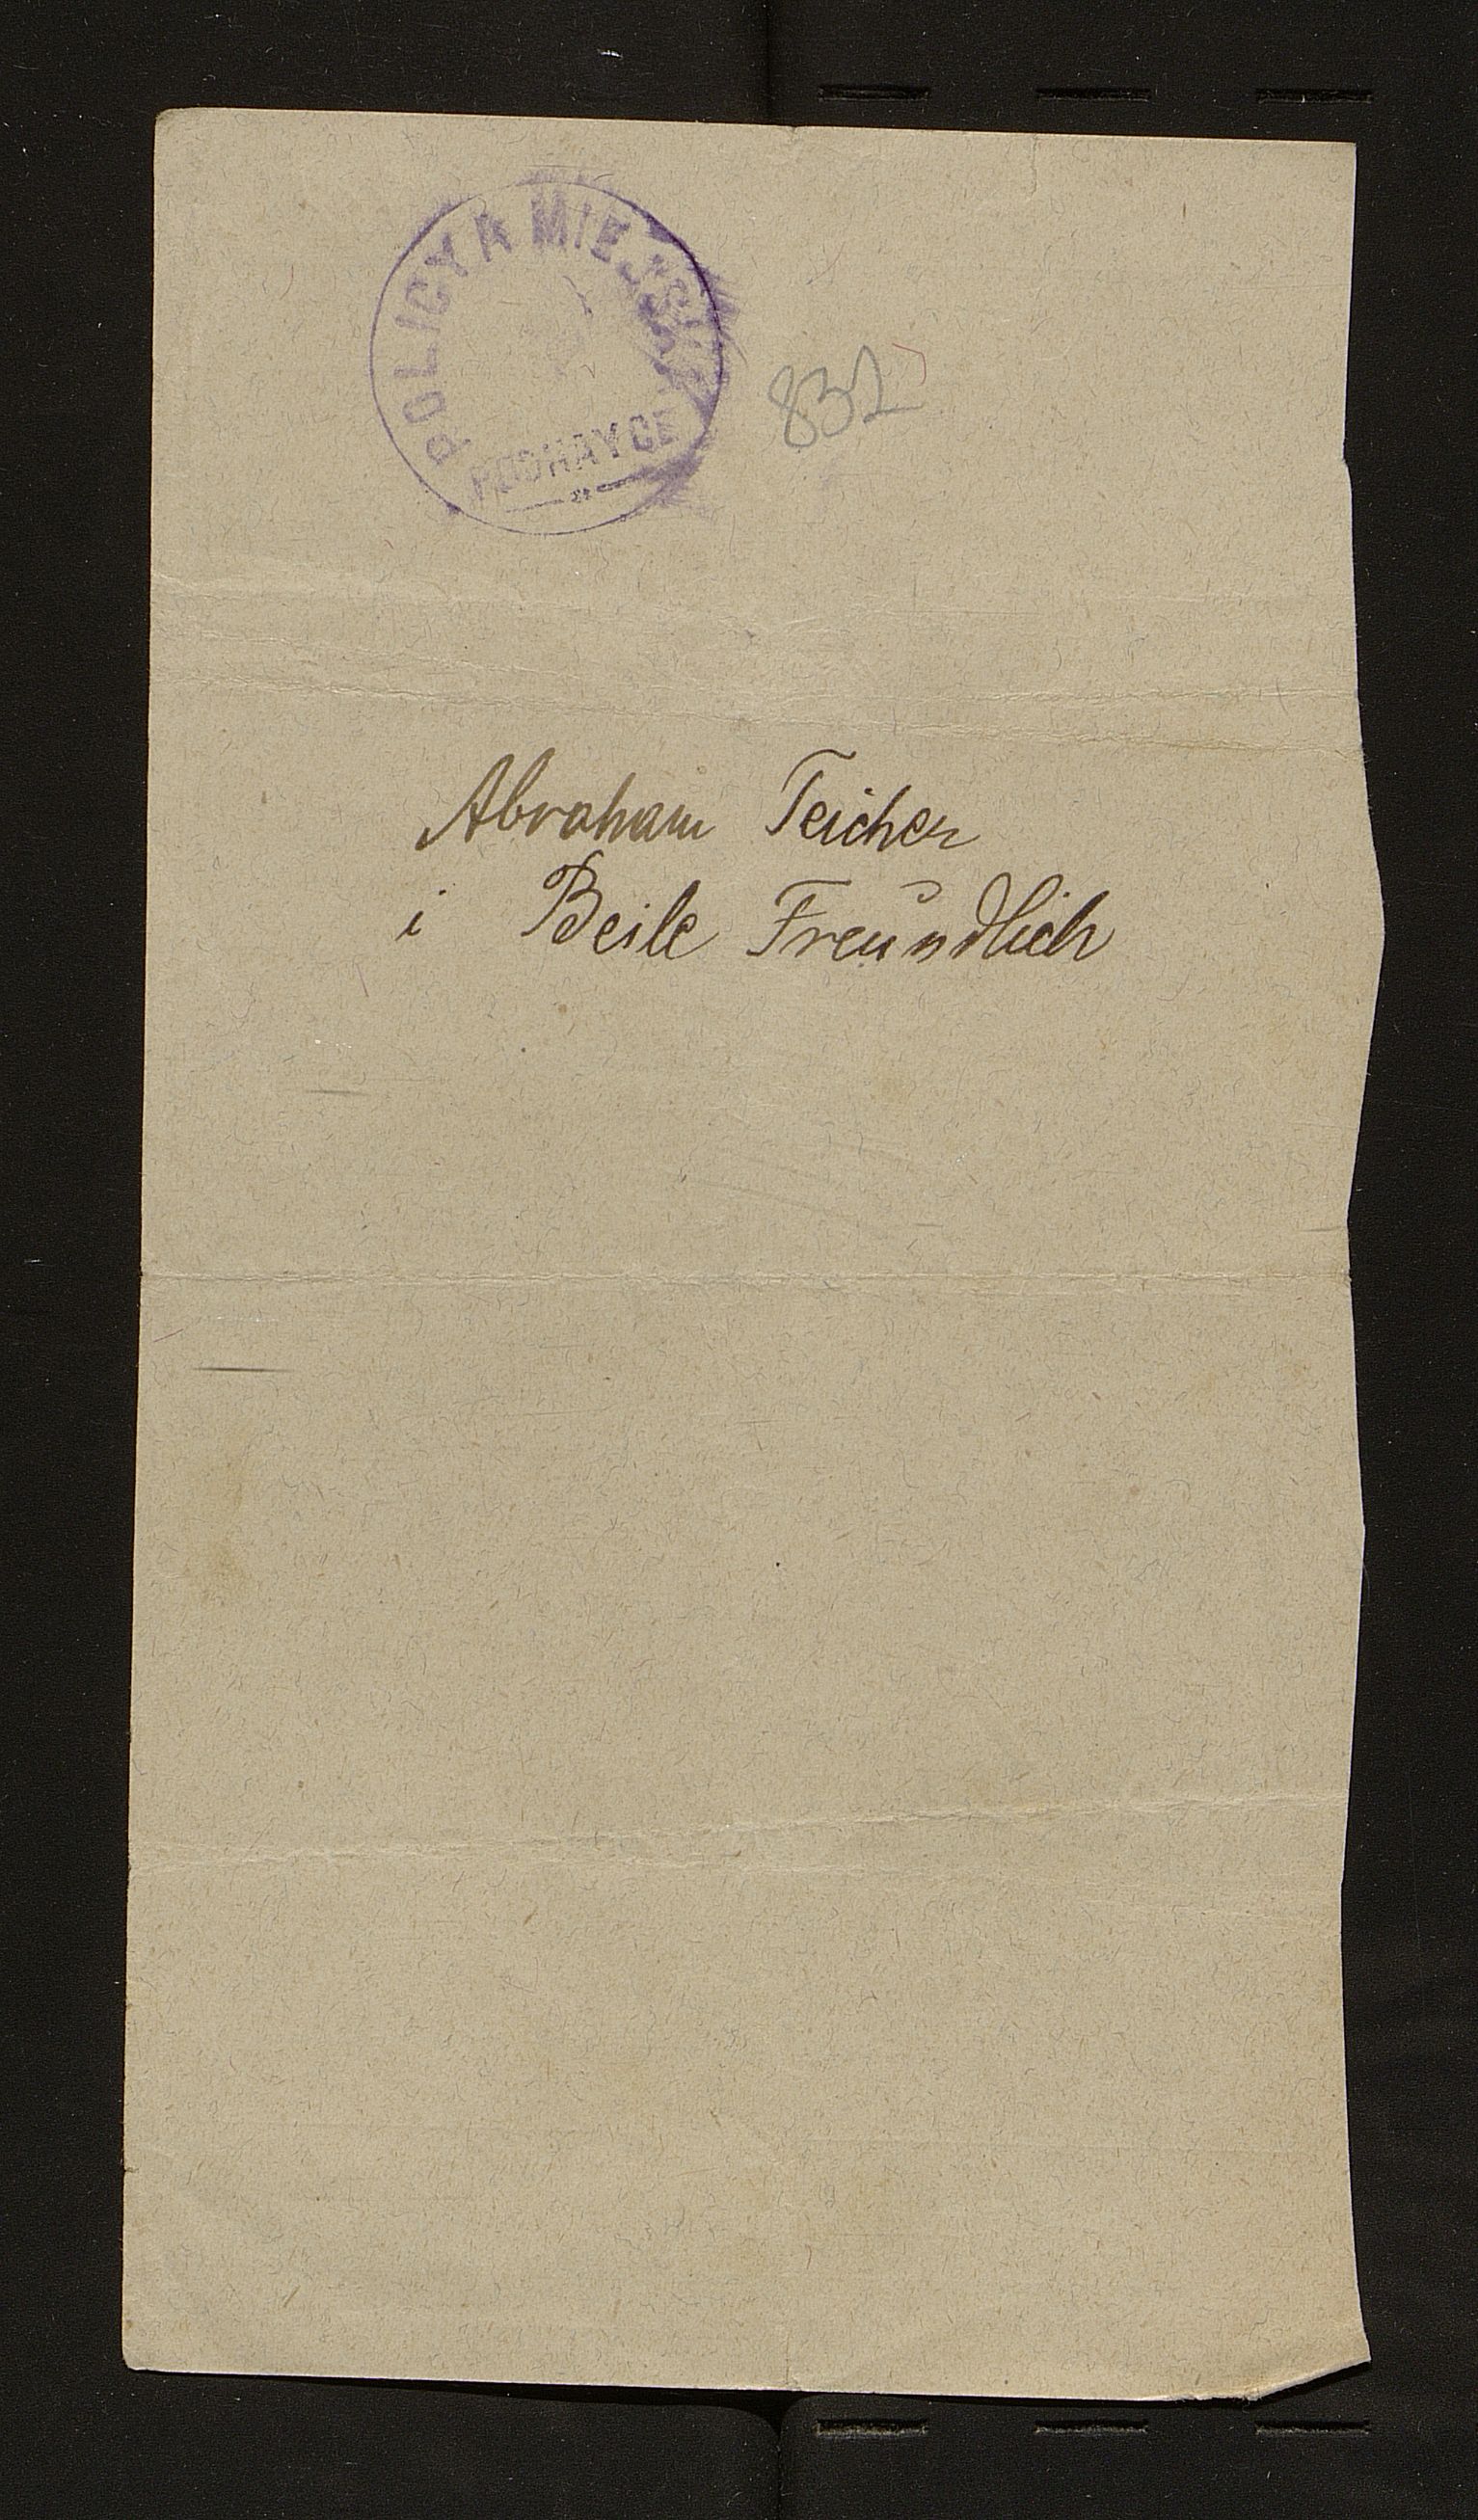 POLICYA MIEJSKA
PODHAYCE
832
Abraham Teicher
i Beile Freundlich